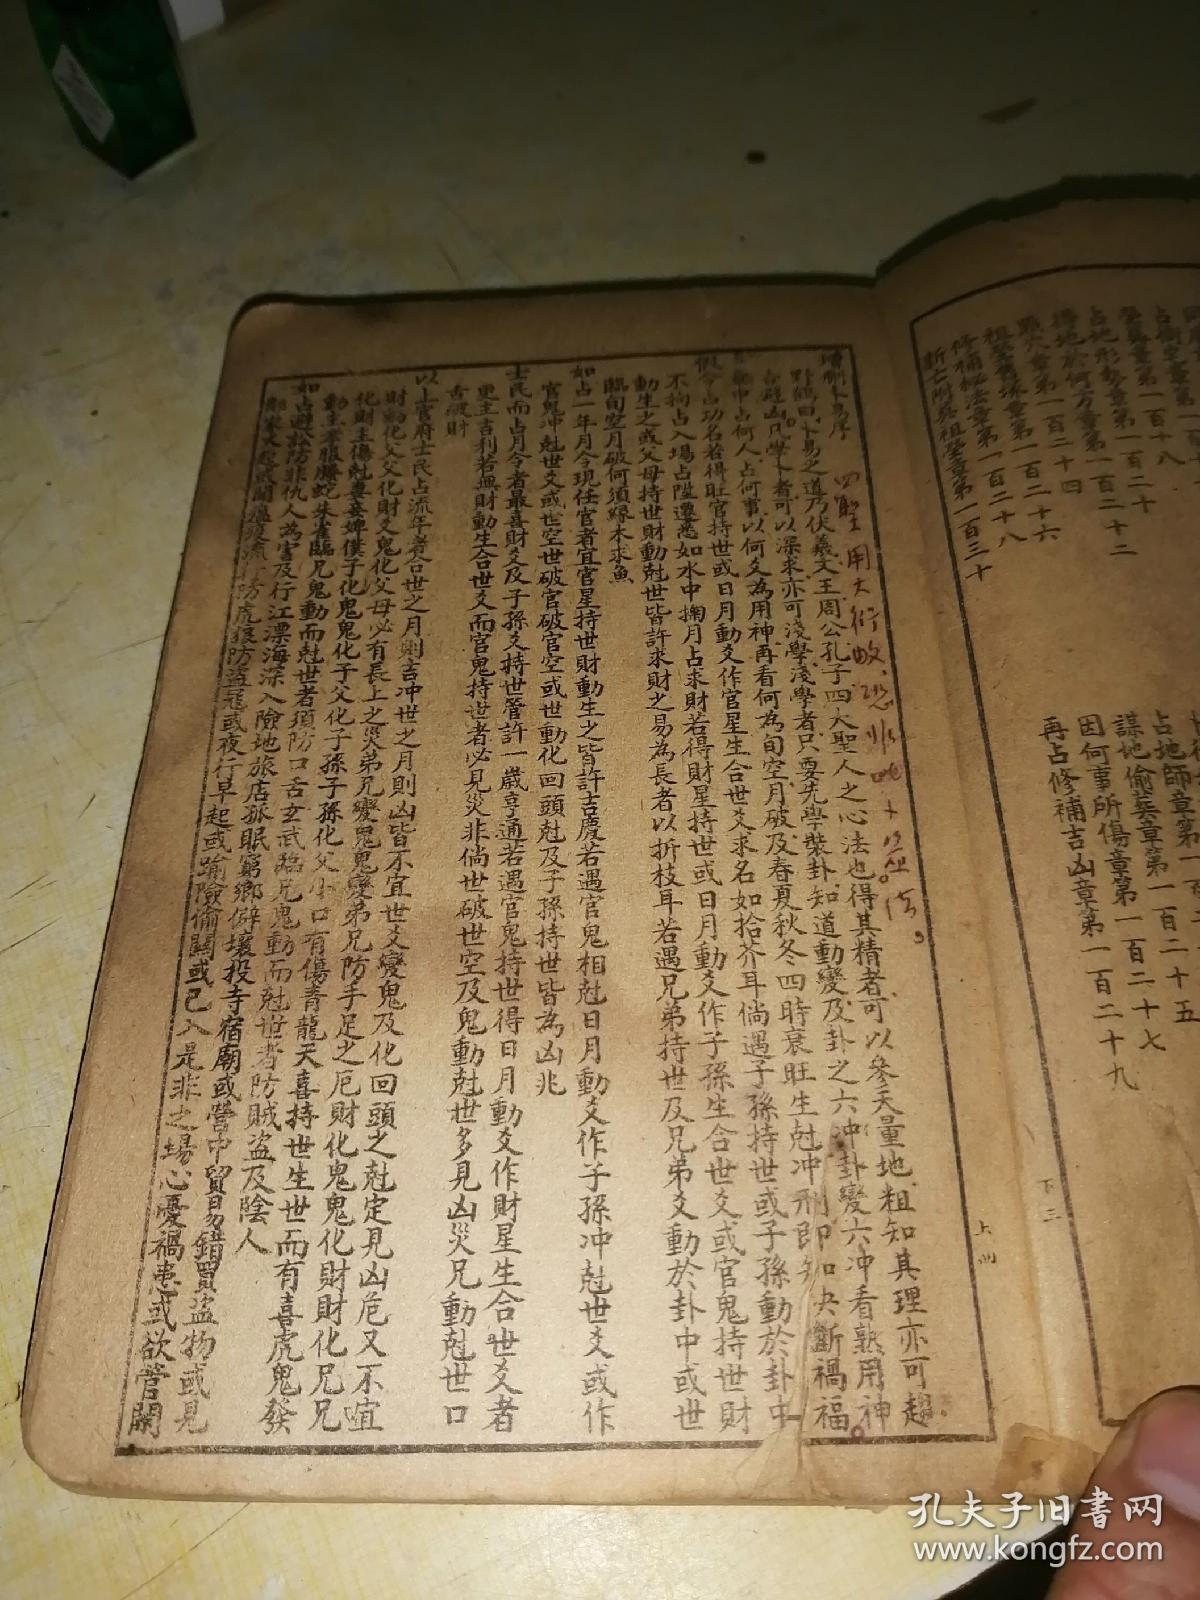 占地師章第一百二十五
謀地偷葬章第一百二十七
因何事所傷章第一百二十九
再占修補吉凶章第
祖塋舊塚章第一百二十六
修補秘法章第一百二十八
新亡附葬祖塋章第一百三十
下三
上册
增刪卜易序
四聖用大衍
野鶴曰卜易之道乃伏羲文王周公孔子四大聖人之心法也得其精者可以參天量地粗知其理亦可趨
吉避凶凡學卜者可以深求亦可淺學淺學者只要先學裝卦知道動變及卦之六冲卦變六冲看熟用神
章中占何人占何事以何爻為用神再看何為旬空月破及春夏秋冬四時衰旺生尅冲刑即知决斷禍福
假令占功名若得旺官持世或日月動爻作官星生合世爻求名如拾芥耳倘遇子孫持世或子孫動於卦中
不拘占入場占陞遷悉如水中掬月占求財若得財星持世或日月動爻作子孫生合世爻或官鬼持世財
動生之或父母持世財動尅世皆許求財之易為長者以折枝耳若遇兄弟持世及兄弟爻動於卦中或世
臨旬空月破何須緣木求魚
如占一年月令現任官者宜官星持世財動生之皆許吉慶若遇官鬼相尅日月動爻作子孫冲尅世爻或作
官鬼冲尅世爻或世空世破官破官空或世動化回頭尅及子孫持世皆為凶兆
士民而占月令者最喜財爻及子孫爻持世管許一歲亨通若遇官鬼持世得日月動爻作財星生合世爻者
更主吉利若無財動生合世爻而官鬼持世者必見災非倘世破世空及鬼動尅世多見凶災兄動尅世口
舌破財
以上官府士民占流年者合世之月則吉冲世之月則凶皆不宜世爻變鬼及化回頭之尅定見凶危又不宜
財動化父父化財父鬼化父母必有長上之災弟兄變鬼鬼變弟兄防手足之厄財化鬼鬼化財財化兄兄
化財主傷尅妻妾婢僕子化鬼鬼化子父化子孫子孫化父小口有傷青龍天喜持世生世而有喜虎鬼發
動主孝服螣蛇朱雀臨兄鬼動而尅世者須防口舌玄武臨兄鬼動而尅世者防賊盜及陰人
如占避訟防非仇人為害及行江漂海深入險地旅店孤眠窮鄉僻壤投寺宿廟或營中貿易錯買盜物或見
防虎狼防盜寇或夜行早起或踰險偷關或已入是非之場心憂禍患或欲管閒
孔夫子旧书网
www.kongfz.com